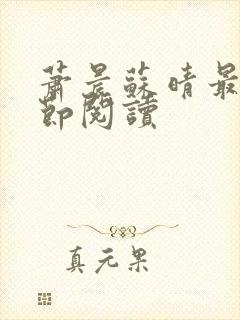 蕭晨蘇晴最
節閱讀
真元果